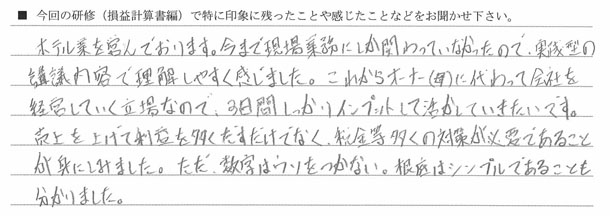 ■ 今回の研修（損益計算書編）で特に印象に残ったことや感じたことなどをお聞かせ下さい。
ホテル業を営んでおります。今まで現場業務にしか関わっていなかったので、実践型の
講議内容で理解しやすく感じました。これからオーナー(母)に代わって会社を
経営していく立場なので、3日間しっかりインプットして活かしていきたいです。
売上を上げて利益を多くだすだけでなく、税金等多くの対策が必要であること
が身にしみました。ただ、数字はウソをつかない。根底はシンプルであることも
分かりました。